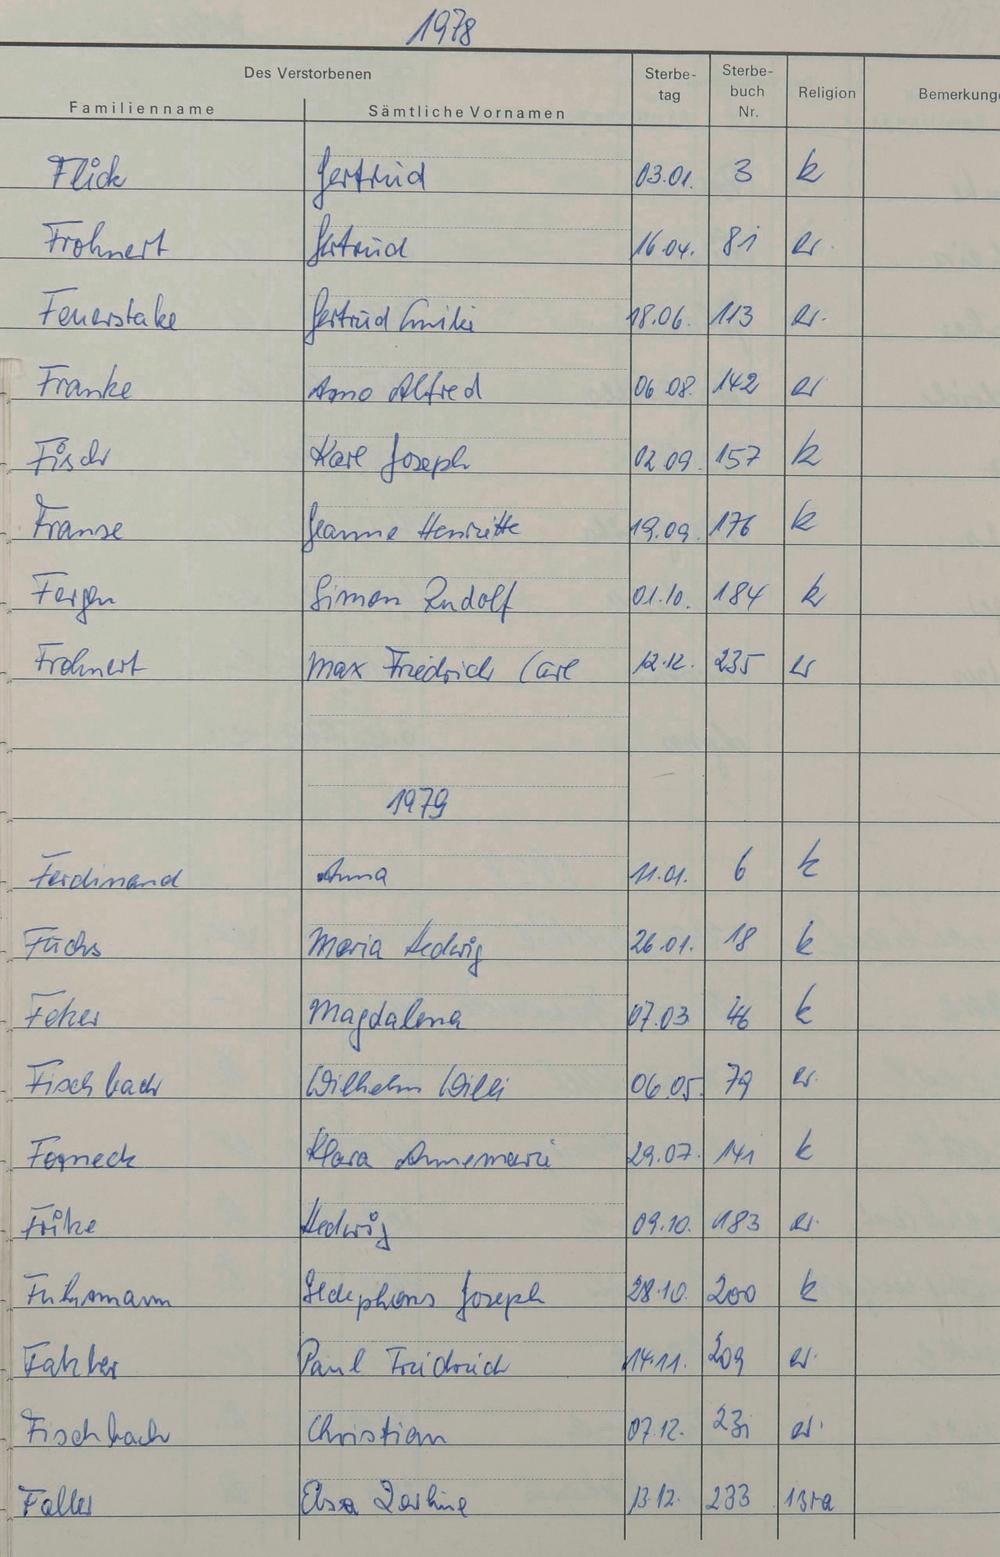 1978
Des Verstorbenen Sterbe- Sterbe-
tag buch Religion Bemerkung
Familienname Sämtliche Vornamen Nr.
Flick Gertrud 03.01. 3 k
Frohnert Gertrud 16.04. 81 ev.
Feuerstake Gertrud Emilie 18.06. 113 ev.
Franke Arno Alfred 06.08. 142 ev
Fischer Karl Joseph 02.09. 157 k
Franse Jeanne Henriette 19.09. 176 k
Fergen Simon Rudolf 01.10. 184 k
Frohnert Max Friedrich Carl 12.12. 235 ev
1979
Ferdinand Anna 11.01. 6 k
Fuchs Maria Hedwig 26.01. 18 k
Feker Magdalena 07.03 46 k
Fischbach Wilhelm Willi 06.05. 79 ev.
Forneck Klara Annemarie 29.07. 141 k
Frike Hedwig 09.10. 183 ev.
Fuhrmann Ildephons Joseph 28.10. 200 k
Paul Friedrich 14.11. 209 ev.
Fischbach Christian 07.12. 231 ev.
Faller Elsa 13.12. 233